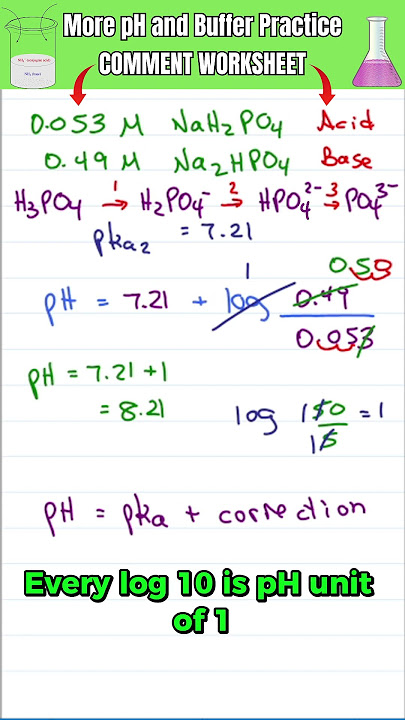 More pH and Buffer Practice
COMMENT WORKSHEET
0.053 M NaH₂PO₄ Acid
0.49 M Na₂HPO₄ Base
H₃PO₄ →¹ H₂PO₄⁻ →² HPO₄²⁻ →³ PO₄³⁻
pka₂ = 7.21
1 0.53
pH = 7.21 + log 0.49/0.053
pH = 7.21 + 1
= 8.21
log 150/15 = 1
pH = pka + correction
Every log 10 is pH unit
of 1